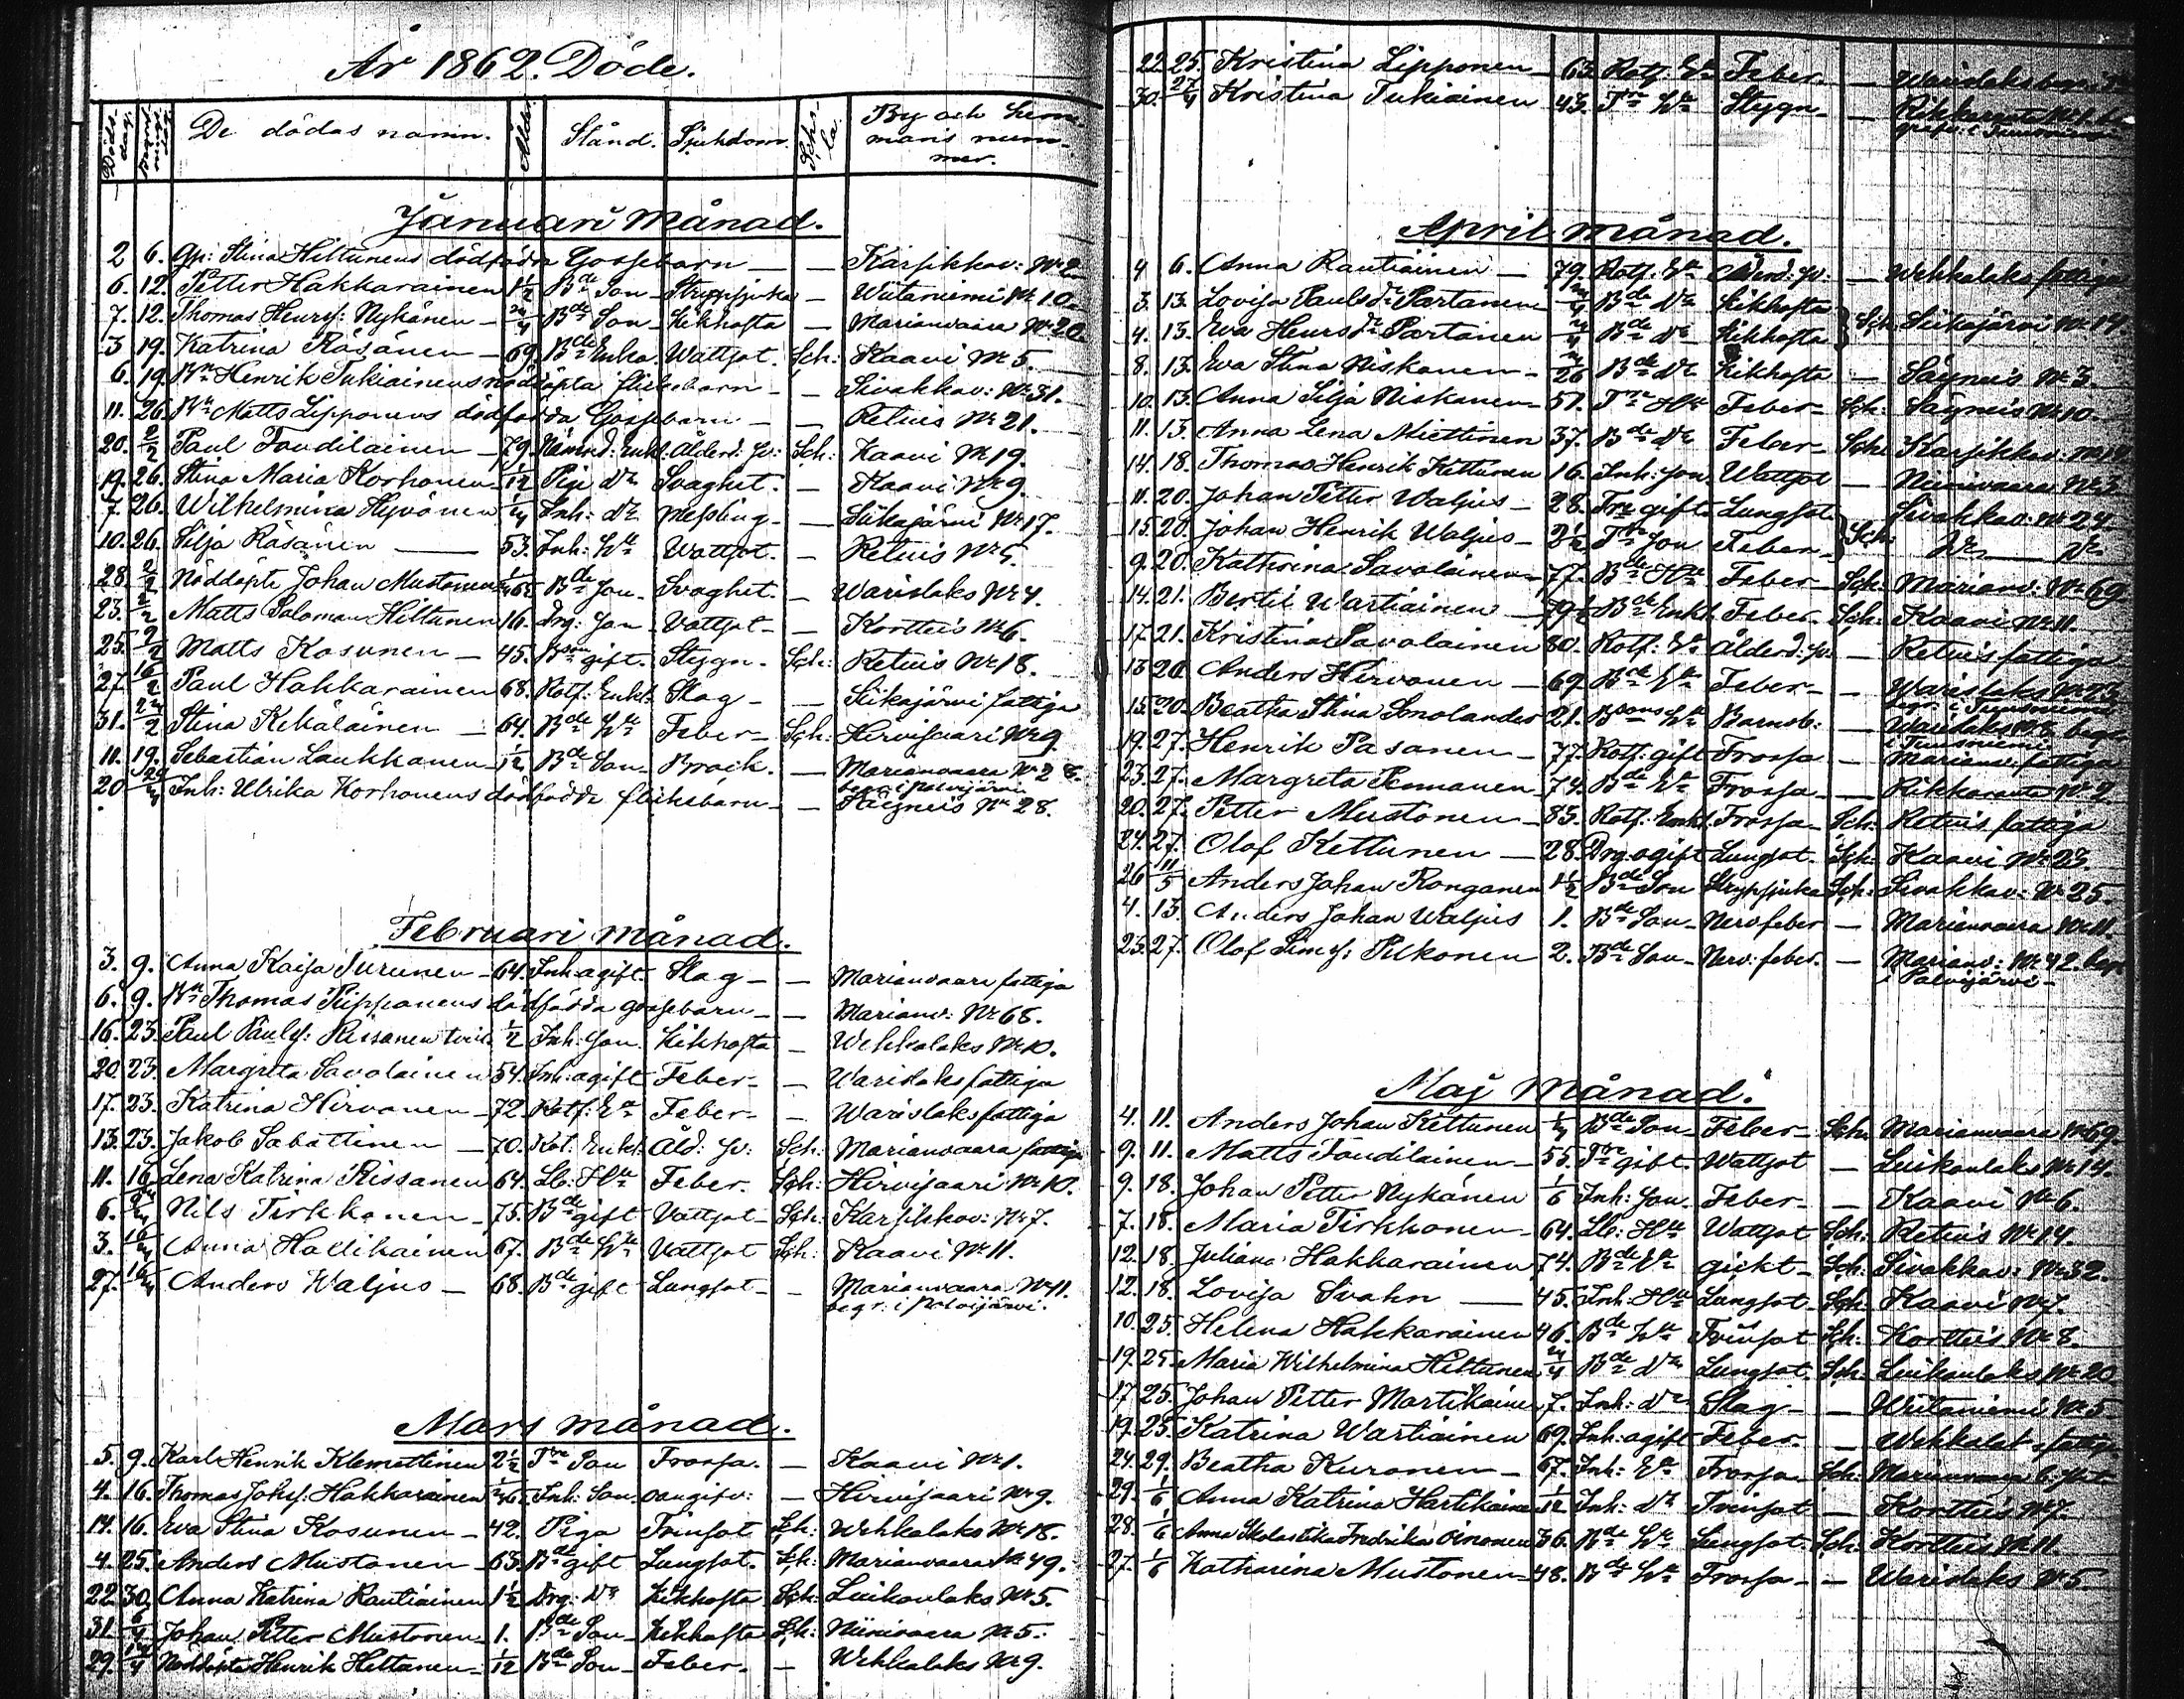 År 1862. Döde.
Döds dag. De dödas namn. Ålder. Stånd. Sjukdom. By och hemmans nummer.
Januari månad.
2 6. Gp: Stina Hiltunens dödfödda Gossebarn — — Karsikkov: No 2
6. 12. Petter Hakkarainen 1½ Bde Son Strypsjuka — Wiitaniemi No 10
7. 12. Thomas Henrs: Nykänen — Bde Son Kikhosta — Marianvaara No 20
3 19. Katrina Räsänen — 69. Bde Enka Wattsot. Sch: Kaavi No 5.
6. 19. Bn Henrik Tukiainens nöddöpta flickebarn — — Sivakkav: No 31.
11. 26 Bn Matts Lipponens dödfödda Gossebarn — — Retuis No 21.
20. 2/2 Paul Toudilainen — 79. Nämnd: Enkl. Ålderd: sv: Sch: Kaavi No 19.
19. 26. Stina Maria Korhonen 1/12 Pigs Dr Svaghet. — Kaavi No 9.
7. 26. Wilhelmina Hyvönen ¼ Inh: Dr Messling — Siikajärvi No 17.
10. 26. Silja Räsänen — 53. Inh: Hu Wattsot. — Retuis No 5.
28. 2/2 Nöddöpte Johan Mustonen Bde Son. Svaghet. — Warislaks No 4.
23. 2/2 Matts Salomon Hiltunen 16. Drg: Son Vattsot — Kortteis No 6.
25. 2/2 Matts Kosunen — 45. Bson gift. Styng. Sch: Retuis No 18.
27. 16/2 Paul Hakkarainen 68. Rotf: Enkl. Slag — — Siikajärvi fattiga
31. 2/2 Stina Kekäläinen — 64. Bde Hu Feber — Sch: Hirvisaari No 9.
11. 19. Sebastian Laukkanen 1/12 Bde Son Bråck. — Marianvaara No 28. begr i Polvijärvi
20 Inh: Ulrika Korhonens dödfödda flickebarn — — Säyneis No 28.
Februari månad.
3. 9. Anna Kaisa Turunen — 64. Inh: agift Slag — — Marianvaara fattiga
6. 9. Bn Thomas Piipponens dödfödda gossebarn — — Marianv: No 68.
16. 23. Paul Pauls: Rissanen tvil. ½ Inh: Son. Kikhosta — Wehkalaks No 10.
20. 23. Margreta Savolainen 54. Inh: agift Feber — — Warislaks fattiga
17. 23. Katrina Hirvonen — 72. Rotf: Ea Feber — — Warislaks fattiga
13. 23. Jakob Sabattinen — 70. Rot. Enkl. Åld: sv: Sch: Marianvaara fattiga
11. 16. Lena Katrina Rissanen 64. Lb: Hu Feber. Sch: Hirvisaari No 10.
6. Nils Tirkkonen — 75. Bde gift Vattsot — Sch: Karsikkov: No 7.
3. Anna Hallikainen 67. Bde Hu Vattsot Sch: Kaavi No 11.
27. Anders Waljus — 68. Bde gift Lungsot — — Marianvaara No 11. begr: i Polvijärvi.
Mars månad.
5. 9. Karl Henrik Klemettinen 2½ Tre Son Frossa. — Kaavi No 1.
4. 16. Thomas Johs: Hakkarainen Inh: Son oangifv: — Hirvisaari No 9.
14. 16. Eva Stina Kosunen — 42. Piga Tvinsot Sch: Wehkalaks No 18.
4. 25. Anders Mustonen — 63. Bde gift Lungsot. Sch: Marianvaara No 49.
22. 30. Anna Katrina Rautiainen 1½ Drg: Dr Kikhosta Sch: Luikonlaks No 5.
31. 6/4 Johan Petter Mustonen 1. Bde Son — Kikhosta Sch: Niinivaara No 5.
29. Nöddöpte Henrik Hiltunen 1/12 Bde Son — Feber. — Wehkalaks No 9.
22. 25. Kristina Lipponen — 63. Rotf: Ea Feber. —
30. 27/4 Kristina Tukiainen 43. Tre Hu Styng — —
April månad.
4 6. Anna Rautiainen — 79. Rotf: Ea Ålderd: sv. — Wehkalaks fattiga
3. 13. Lovisa Paulsdr Partanen Bde Dr Kikhosta Sch. Siikajärvi No 14
4. 13. Eva Henrsdr Partanen Bde Dr Kikhosta
8. 13. Eva Stina Niskanen — Bde Dr Kikhosta — Säyneis No 3
10. 13. Anna Silja Niskanen 57. Tre Hu Feber — Sch: Säyneis No 10.
11. 13. Anna Lena Miettinen 37. Bde Dr Feber — Sch: Karsikkov:
14. 18. Thomas Henrik Kettunen 16. Inh: son. Wattsot — Niinivaara No 3
11. 20. Johan Petter Waljus — 28. Tre gift Lungsot Sch: Sivakkav: No 24
15. 20. Johan Henrik Waljus — 2½ Tre Son Feber — Dr — Dr
9. 20. Kathrina Savolainen 77. Bde Hu Feber — Sch: Marianv: No 69
14. 21. Bertil Wartiainen — 79½ Bde Enkl. Feber. Sch: Kaavi No 11.
17. 21. Kristina Savolainen 80. Rotf: Ea Ålderd: sv: — Retuis fattiga
13 20. Anders Hirvonen — 69. Bde Feber — — Warislaks No 23 begr: i Tuusniemi
15. 20. Beatha Stina Snolander 21. Bsons Hu Barnsb: — Warislaks begr i Tuusniemi
19. 27. Henrik Pasanen — 77. Rotf: gift Frossa — Marianv: fattiga
23. 27. Margreta Pennanen 74. Bde Ea Frossa — — Rikkaranta No 2
20. 27. Petter Mustonen — 83. Rotf: Enkl. Frossa — Sch: Retuis fattiga
24. 27. Olof Kettunen — 28. Drg. ogift Lungsot. Sch: Kaavi No 23.
26 11/5 Anders Johan Ronganen 1½ Bde Son Strypsjuka Sch: Sivakkav: No 25.
4. 13. Anders Johan Waljus 1. Bde Son Nervfeber — Marianvaara No 11.
23. 27. Olof Sims: Pulkonen 2. Bde Son — Nerv: feber. — Marianv: No 42. begr i Polvijärvi —
Maj Månad.
4. 11. Anders Johan Kettunen Bde Son — Feber — Sch: Marianvaara No 69.
9. 11. Matts Toudilainen — 55. Tre gift. Wattsot — Luikonlaks No 14.
9. 18. Johan Petter Nykänen 1/6 Inh: Son. Feber — — Kaavi No 6.
7. 18. Maria Tirkkonen — 64. Lb: Hu Wattsot Sch: Retuis No 14.
12. 18. Juliana Hakkarainen 74. Bde Ea gickt — Sch: Sivakkav: No 32.
12. 18. Lovisa Svahn — 45. Inh: Hu Lungsot Sch: Kaavi No 7.
10. 25. Helena Hakkarainen 46. Bde Hu Tvinsot Sch: Kortteis No 8.
19. 25. Maria Wilhelmina Hiltunen Bde Dr Lungsot Sch: Luikonlaks No 20
17. 25. Johan Petter Martikainen 7. Inh: Dr Slag — — Wiitaniemi No 5
19. 25. Katrina Wartiainen 69. Inh: agift Feber. — Wehkalaks fattiga
24. 29. Beatha Kuronen — 67. Inh: Ea Frossa Sch: Marianvaara
29. 1/6 Anna Katrina Hartikainen 1/12 Inh: Dr Tvinsot — Kortteis No 7.
28. 1/6 Anna Skolastika Fredrika Oinonen 36. Bde Hu Lungsot. Sch: Kortteis No 11
27. 1/6 Katharina Mustonen 48. Bde Hu Frossa — — Warislaks No 5